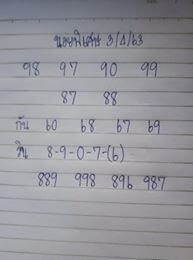 นอยพิเศษ 3/4/63
98 97 90 99
87 88
กัน 60 68 67 69
วิน 8-9-0-7-(6)
889 998 896 987